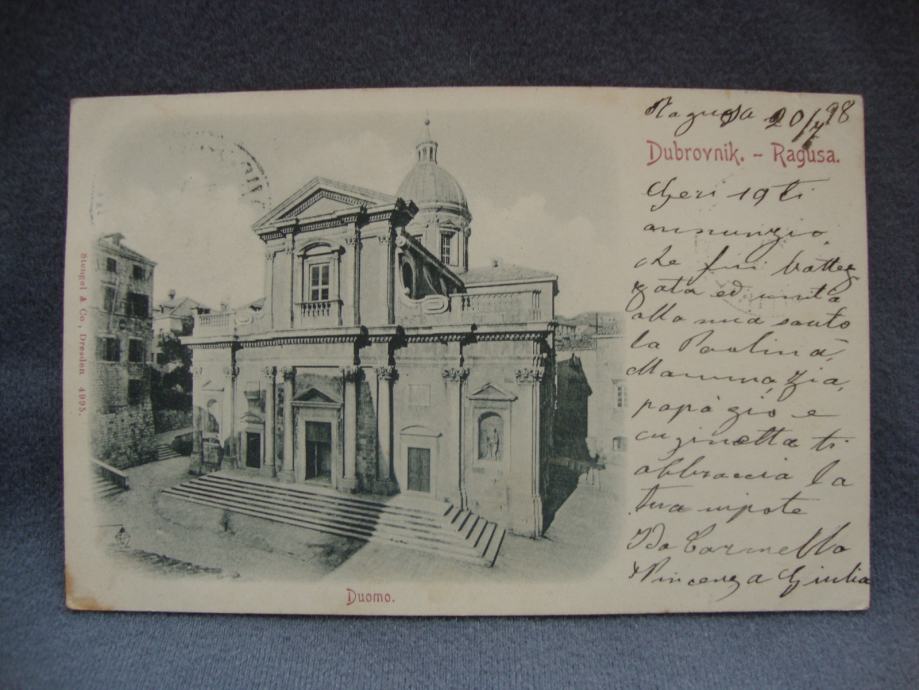 Ragusa 20/4 98
Dubrovnik. - Ragusa.
Ieri 19 ti
annunzio
che fui battez
zata ed unita
alla mia santo
la Paolina,
Mamma, zia,
papà zio e
cuginetta ti
abbraccia la
tua nipote
Ida Carmella
Vincenza Giulia
Stengel & Co., Dresden 4995.
Duomo.